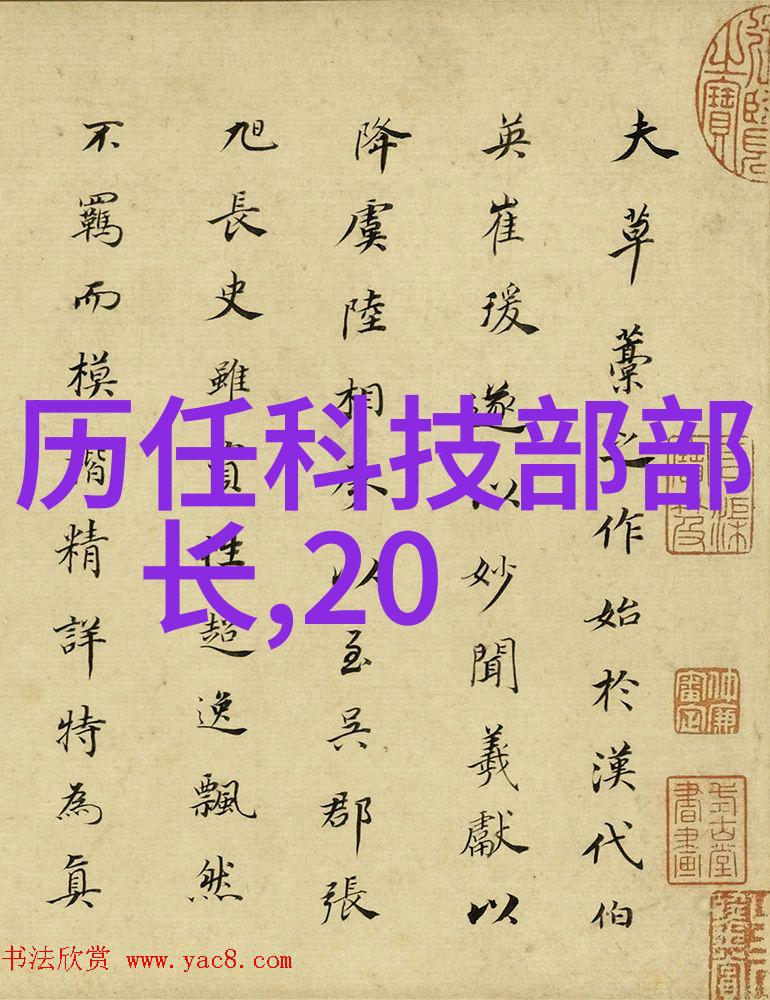 夫草藁之作始於漢代伯
英崔瑗遂以妙聞羲獻以
降虞陸相承以至吳郡張
旭長史雖資性超逸飄然
不羈而模楷精詳特為真
历任科技部部
长,20
书法欣赏 www.yac8.com